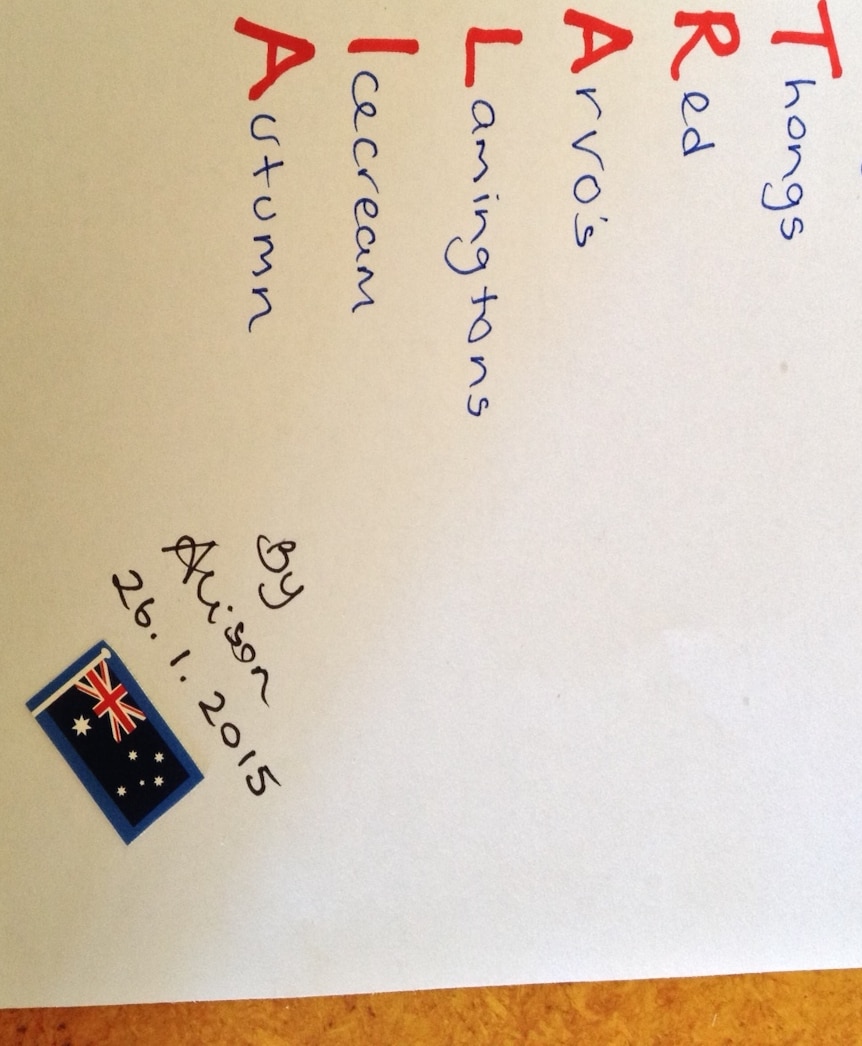 Thongs
Red
Arvo's
Lamingtons
Icecream
Autumn
By
Alison
26.1.2015